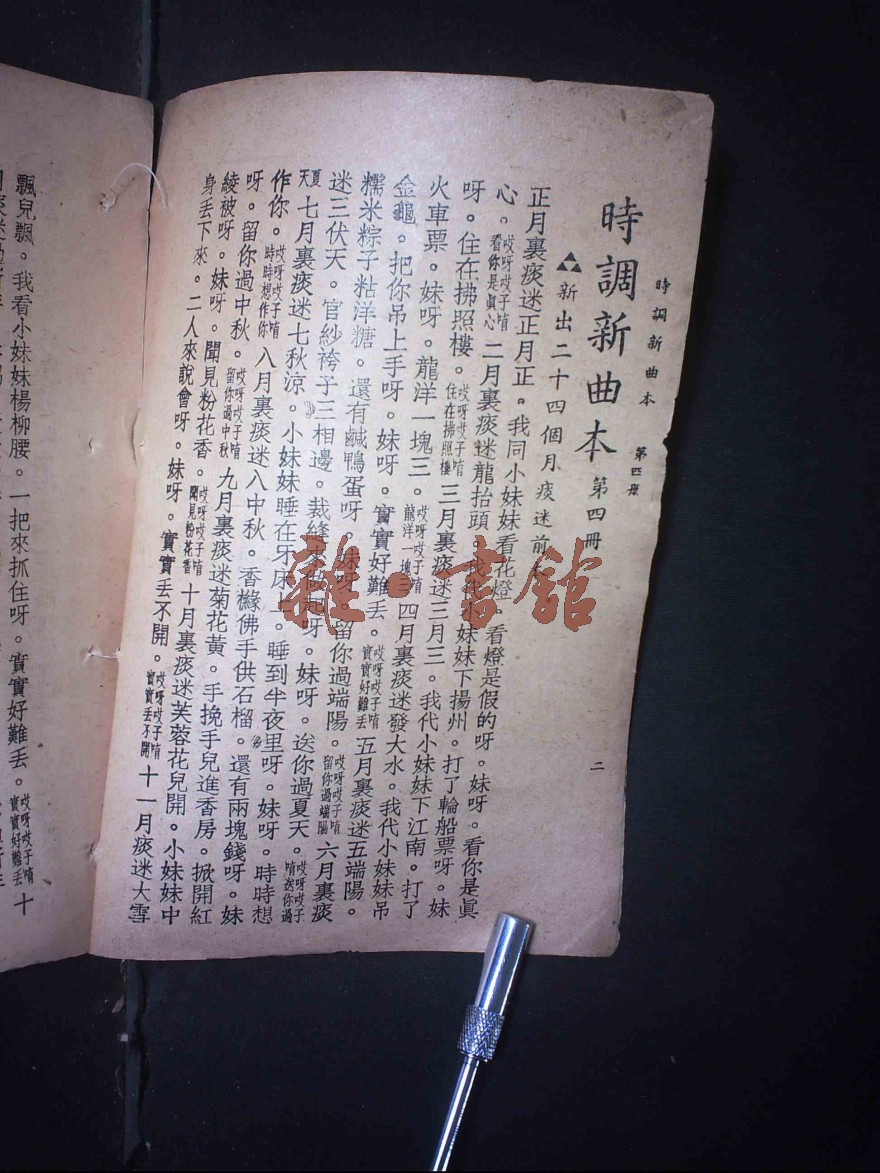 時調新曲本 第四冊
二
時調新曲本 第四冊
新出二十四個月痰迷前
正月裏痰迷正月正。我同小妹妹看花燈。看燈是假的呀。妹呀。看你是眞
心。哎呀哎子唷看你是眞心二月裏痰迷龍抬頭。我代小妹妹下揚州。打了輪船票呀。妹
呀。住在拂照樓。哎呀哎子唷住在拂照樓三月裏痰迷三月三。我代小妹妹下江南。打了
火車票。妹呀。龍洋一塊三。哎呀哎子唷龍洋一塊三四月裏痰迷發大水。我代小妹妹吊
金龜。把你吊上手呀。妹呀。實實好難丢。哎呀哎子唷實實好難丢五月裏痰迷五端陽。
糯米粽子粘洋糖。還有鹹鴨蛋呀。妹呀。留你過端陽。哎呀哎子唷留你過端陽六月裏痰
迷三伏天。官紗袴子三相邊。裁縫來做起呀。妹呀。送你過夏天。哎呀哎子唷送你過
夏天七月裏痰迷七秋涼。小妹妹睡在牙床上。睡到半夜里呀。妹呀。時時想
作你。哎呀哎子唷時時想作你八月裏痰迷八中秋。香櫞佛手供石榴。還有兩塊錢呀。妹
呀。留你過中秋。哎呀哎子唷留你過中秋九月裏痰迷菊花黃。手挽手兒進香房。掀開紅
綾被呀。妹呀。聞見粉花香。哎呀哎子唷聞見粉花香十月裏痰迷芙蓉花兒開。小妹妹中
身丢下來。二人來說會呀。妹呀。實實丢不開。哎呀哎子唷實實丢不開十一月痰迷大雪
飄兒飄。我看小妹妹楊柳腰。一把來抓住呀。實實好難丢。哎呀哎子唷實實好難丢十
雜·書館